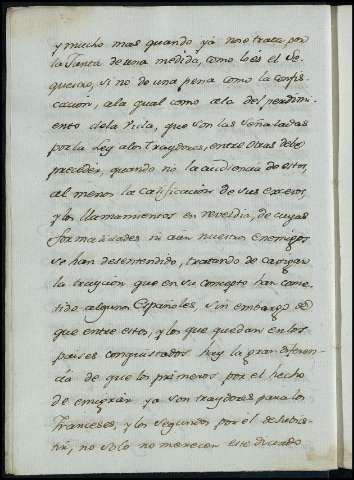 y mucho mas quando ya no se trata, por
la Junta de una medida, como lo es el Se-
questro, si no de una pena como la confis-
cacion, a la qual como a la del perdimi-
ento de la Vida, que son las señaladas
por la Ley a los Traydores, entre otras debe
preceder, quando no la audiencia de estos,
al menos la calificacion de sus excesos,
y los llamamientos en reveldia, de cuyas
formalidades ni aun nuestros Enemigos
se han desentendido, tratando de castigar
la traycion que en su concepto han come-
tido algunos Españoles, sin embargo de
que entre estos, y los que quedan en los
paises conquistados hay la gran diferen-
cia de que los primeros por el hecho
de emigrar ya son traydores para los
Franceses, y los segundos por el de subsis-
tir, no solo no merecen este dictado